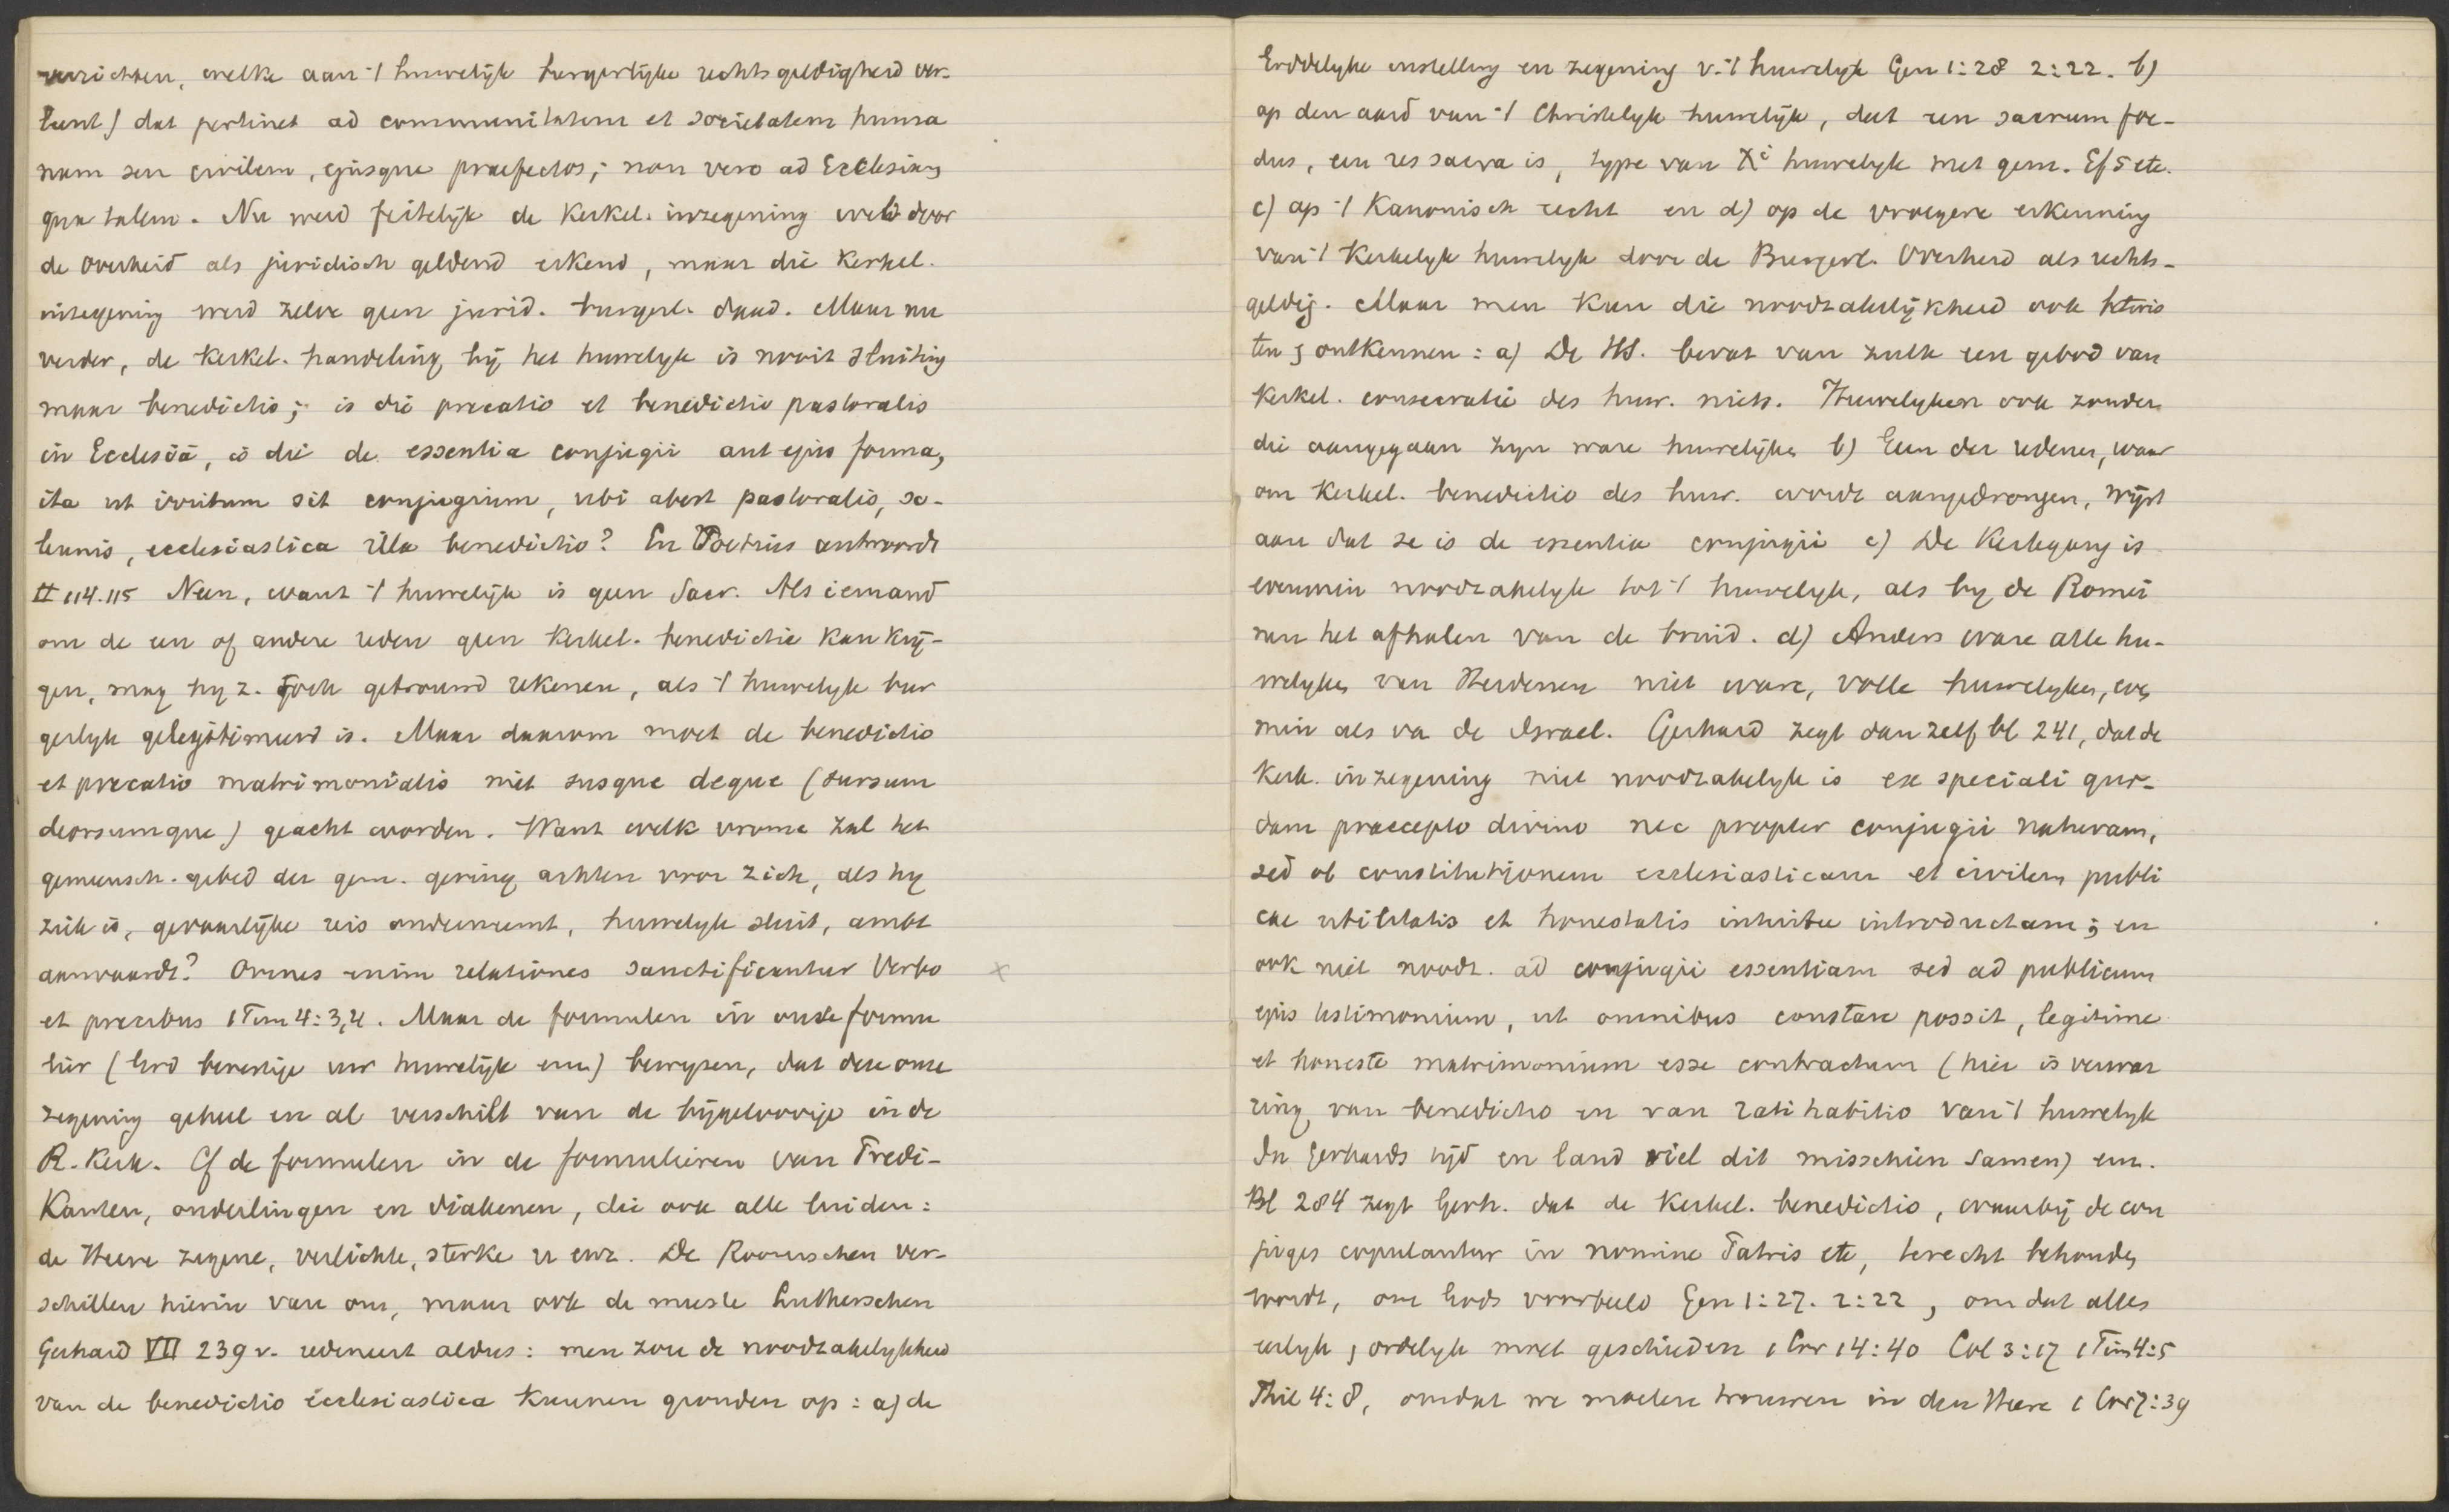 verrichten, welke aan 't huwelijk burgerlijke rechtsgeldigheid ver-
leent) dat pertinet ad communitatem et societatem huma
nam seu civilem, ejusque praefectos; non vero ad Ecclesiam
qua talem. Nu werd feitelijk de Kerkel. inzegening wel door
de Overheid als juridisch geldend erkend, maar die Kerkel.
inzegening werd zelve geen jurid. burgerl. daad. Maar nu
verder, de Kerkel. handeling bij het huwelyk is nooit sluiting
maar benedictio; is die precatio et benedictio pastoralis
in Ecclesiâ, is die de essentia conjugii aut ejus forma,
ita ut irritum sit conjugium, ubi abest pastoralis, so-
lennis, ecclesiastica illa benedictio? En Voetius antwoordt
II 114.115 Neen, want 't huwelijk is geen Sacr. Als iemand
om de een of andere reden geen Kerkel. benedictie kan krij-
gen, mag hy z. toch getrouwd rekenen, als 't huwelyk bur
gerlyk gelegitimeerd is. Maar daarom moet de benedictio
et precatio matrimonialis niet susque deque (sursum
deorsumque) geacht worden. Want welk vrome zal het
gemeensch. gebed der gem. gering achten voor zich, als hy
ziek is, gevaarlijke reis onderneemt, huwelyk sluit, ambt
aanvaardt? Omnes enim relationes sanctificantur Verbo
et precibus 1 Tim 4:3,4. Maar de formulen in onze formu
lier (God bevestige uw huwelijk enz) bewyzen, dat deze onze
zegening geheel en al verschilt van de bijgeloovige in de
R. Kerk. Cf de formulen in de formulieren van Predi-
Kanten, onderlingen en diakenen, die ook alle luiden:
de Heere zegene, verlichte, sterke u enz. De Roomschen ver-
schillen hierin van ons, maar ook de meeste Lutherschen
Gerhard VII 239 v. redeneert aldus: men zou de noodzakelykheid
van de benedictio ecclesiastica kunnen gronden op: a) de
Goddelyke instelling en zegening v. 't huwelyk Gen 1:28 2:22. b)
op den aard van 't Christelyk huwelijk, dat een sacrum foe-
dus, een res sacra is, type van Xi huwelyk met gem. Ef 5 etc.
c) op 't Kanonisch recht en d) op de vroegere erkenning
van 't Kerkelyk huwelyk door de Burgerl. Overheid als rechts-
geldig. Maar men kan die noodzakelijkheid ook betwis
ten, ontkennen: a) De HS. bevat van zulk een gebod van
Kerkel. consecratie des huw. niets. Huwelyken ook zonder
die aangegaan zyn ware huwelijken b) Een der redenen, waar
om Kerkel. benedictio des huw. wordt aangedrongen, wijst
aan dat ze is de essentia conjugii c) De Kerkgang is
evenmin noodzakelyk tot 't huwelyk, als by de Romei
nen het afhalen van de bruid. d) Anders ware alle hu-
welyken van Heidenen niet ware, volle huwelyken, even
min als va de Israel. Gerhard zegt dan zelf bl 241, dat de
Kerk. inzegening niet noodzakelyk is ex speciali quo-
dam praecepto divino nec propter conjugii naturam,
sed ob constitutionem ecclesiasticam et civilem publi
cae utilitatis et honestatis intuitu introductam; en
ook niet noodz. ad conjugii essentiam sed ad publicum
ejus testimonium, ut omnibus constare possit, legitime
et honeste matrimonium esse contractum (hier is verwar
ring van benedictio en van ratihabitio van 't huwelyk
In Gerhards tijd en land viel dit misschien samen) enz.
Bl 284 zegt Gerh. dat de Kerkel. benedictio, waarbij de con
juges copulantur in nomine Patris etc, terecht behouden
wordt, om Gods voorbeeld Gen 1:27. 2:22, omdat alles
eerlyk, ordelyk moet geschieden 1 Cor 14:40 Col 3:17 1 Tim 4:5
Phil 4:8, omdat we moeten trouwen in den Heere 1 Cor 7:39